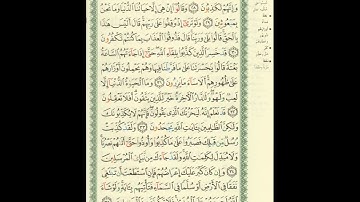 وَإِنَّهُمْ لَكَٰذِبُونَ ٢٨ وَقَالُوٓا۟ إِنْ هِىَ إِلَّا حَيَاتُنَا ٱلدُّنْيَا وَمَا نَحْنُ
بِمَبْعُوثِينَ ٢٩ وَلَوْ تَرَىٰٓ إِذْ وُقِفُوا۟ عَلَىٰ رَبِّهِمْ قَالَ أَلَيْسَ هَٰذَا
بِٱلْحَقِّ قَالُوا۟ بَلَىٰ وَرَبِّنَا قَالَ فَذُوقُوا۟ ٱلْعَذَابَ بِمَا كُنتُمْ تَكْفُرُونَ
٣٠ قَدْ خَسِرَ ٱلَّذِينَ كَذَّبُوا۟ بِلِقَآءِ ٱللَّهِ حَتَّىٰٓ إِذَا جَآءَتْهُمُ ٱلسَّاعَةُ
بَغْتَةً قَالُوا۟ يَٰحَسْرَتَنَا عَلَىٰ مَا فَرَّطْنَا فِيهَا وَهُمْ يَحْمِلُونَ أَوْزَارَهُمْ
عَلَىٰ ظُهُورِهِمْ أَلَا سَآءَ مَا يَزِرُونَ ٣١ وَمَا ٱلْحَيَوٰةُ ٱلدُّنْيَآ إِلَّا
لَعِبٌ وَلَهْوٌ وَلَلدَّارُ ٱلْءَاخِرَةُ خَيْرٌ لِّلَّذِينَ يَتَّقُونَ أَفَلَا تَعْقِلُونَ
٣٢ قَدْ نَعْلَمُ إِنَّهُۥ لَيَحْزُنُكَ ٱلَّذِى يَقُولُونَ فَإِنَّهُمْ لَا يُكَذِّبُونَكَ
وَلَٰكِنَّ ٱلظَّٰلِمِينَ بِـَٔايَٰتِ ٱللَّهِ يَجْحَدُونَ ٣٣ وَلَقَدْ كُذِّبَتْ
رُسُلٌ مِّن قَبْلِكَ فَصَبَرُوا۟ عَلَىٰ مَا كُذِّبُوا۟ وَأُوذُوا۟ حَتَّىٰٓ أَتَىٰهُمْ نَصْرُنَا
وَلَا مُبَدِّلَ لِكَلِمَٰتِ ٱللَّهِ وَلَقَدْ جَآءَكَ مِن نَّبَإِى۟ ٱلْمُرْسَلِينَ
٣٤ وَإِن كَانَ كَبُرَ عَلَيْكَ إِعْرَاضُهُمْ فَإِنِ ٱسْتَطَعْتَ أَن تَبْتَغِىَ
نَفَقًا فِى ٱلْأَرْضِ أَوْ سُلَّمًا فِى ٱلسَّمَآءِ فَتَأْتِيَهُم بِـَٔايَةٍ وَلَوْ شَآءَ